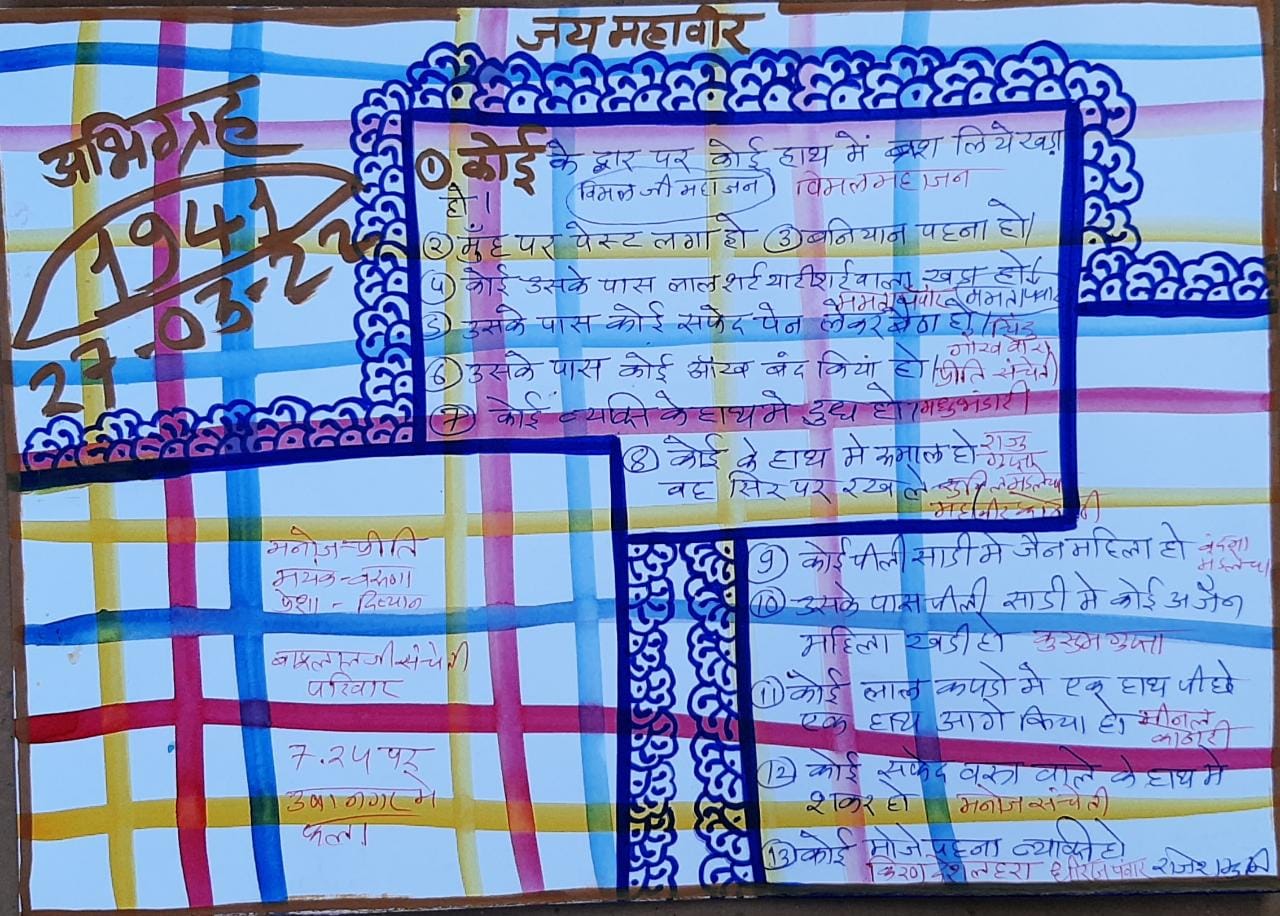 जय महावीर
अभिग्रह
1941
27-03-22
① कोई के द्वार पर कोई हाथ में ब्रश लिये खड़ा
हो। विमलजी महाजन विमल महाजन
② मुँह पर पेस्ट लगा हो ③ बनियान पहना हो।
④ कोई उसके पास लाल शर्ट या टीशर्ट वाला खड़ा हो।
ममता पंवार
⑤ उसके पास कोई सफेद पेन लेकर बैठा हो।
⑥ उसके पास कोई आँख बंद कियां हो। प्रीति संचेती
⑦ कोई व्यक्ति के हाथ मे दुध हो।
⑧ कोई के हाथ मे रुमाल हो राजु
गुप्ता
वह सिर पर रख ले
⑨ कोई पीली साडी मे जैन महिला हो
⑩ उसके पास पीली साडी मे कोई अजैन
महिला खडी हो कुसुम गुप्ता
⑪ कोई लाल कपडो मे एक हाथ पीछे
एक हाथ आगे किया हो मीनल
कोठारी
⑫ कोई सफेद वस्त्र वाले के हाथ मे
शकर हो मनोज संचेती
⑬ कोई मोजे पहना व्यक्ति हो
किरण देशलहरा धीरज पंवार राजेश
मनोज-प्रीति
मयंक-वरुणा
- दिव्यान
बाबुलालजी संचेती
परिवार
7.24 पर
उषा नगर मे
फला